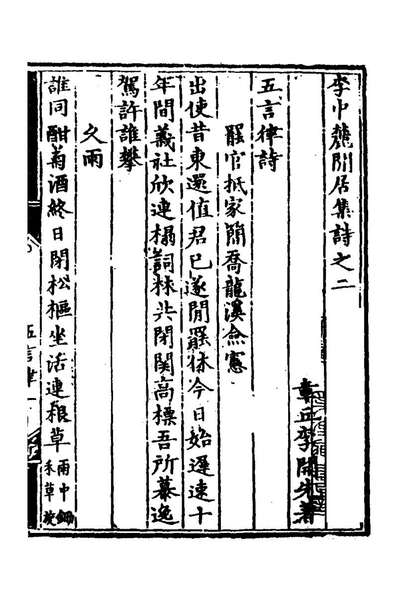 李中麓閒居集詩之二
章丘李開先著
五言律詩
罷官抵家簡喬龍溪僉憲
出使昔東還值君已遂閒罷休今日始遲速十
年間義社欣連榻詞林共閉関高標吾所慕逸
駕許誰攀
久雨
誰同酣菊酒終日閉松樞坐活連根草雨中鋤禾草旋
五言律